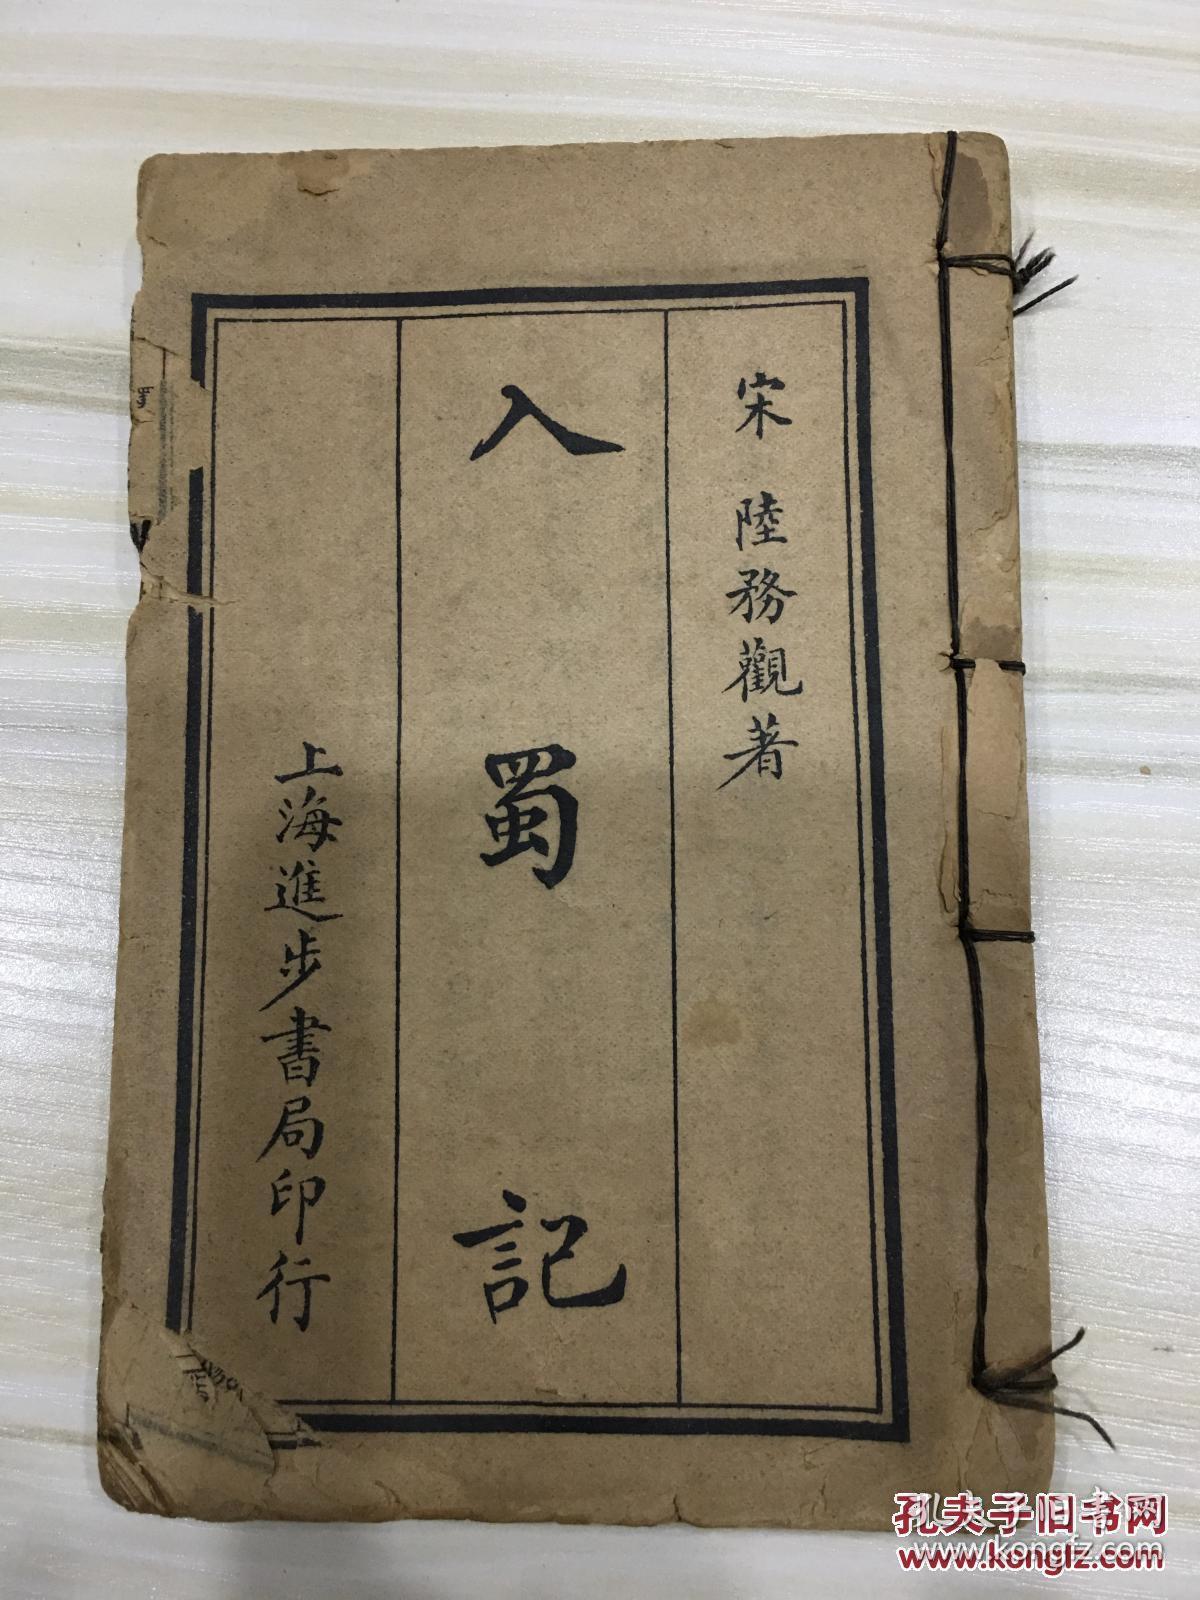 宋 陸務觀著
入蜀記
上海進步書局印行
孔夫子旧书网
www.kongfz.com